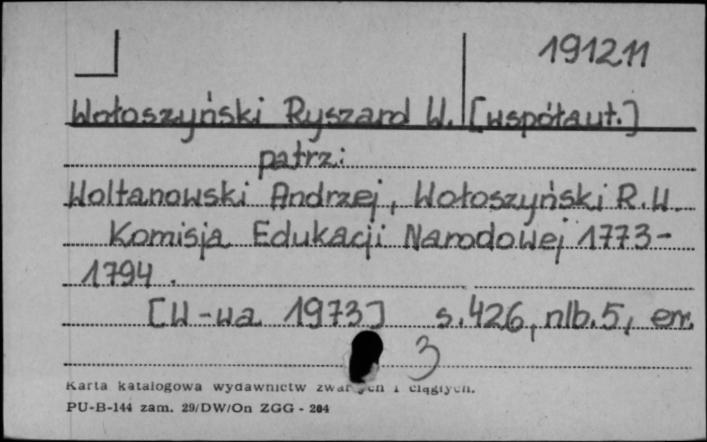 191211
Wołoszyński Ryszard W. [współaut.]
patrz:
Woltanowski Andrzej, Wołoszyński R.W.
Komisja Edukacji Narodowej 1773-
1794.
[W-wa 1973] s.426, nlb.5, err.
3
Karta katalogowa wydawnictw zwartych i ciągłych.
PU-B-144 zam. 29/DW/On ZGG - 204